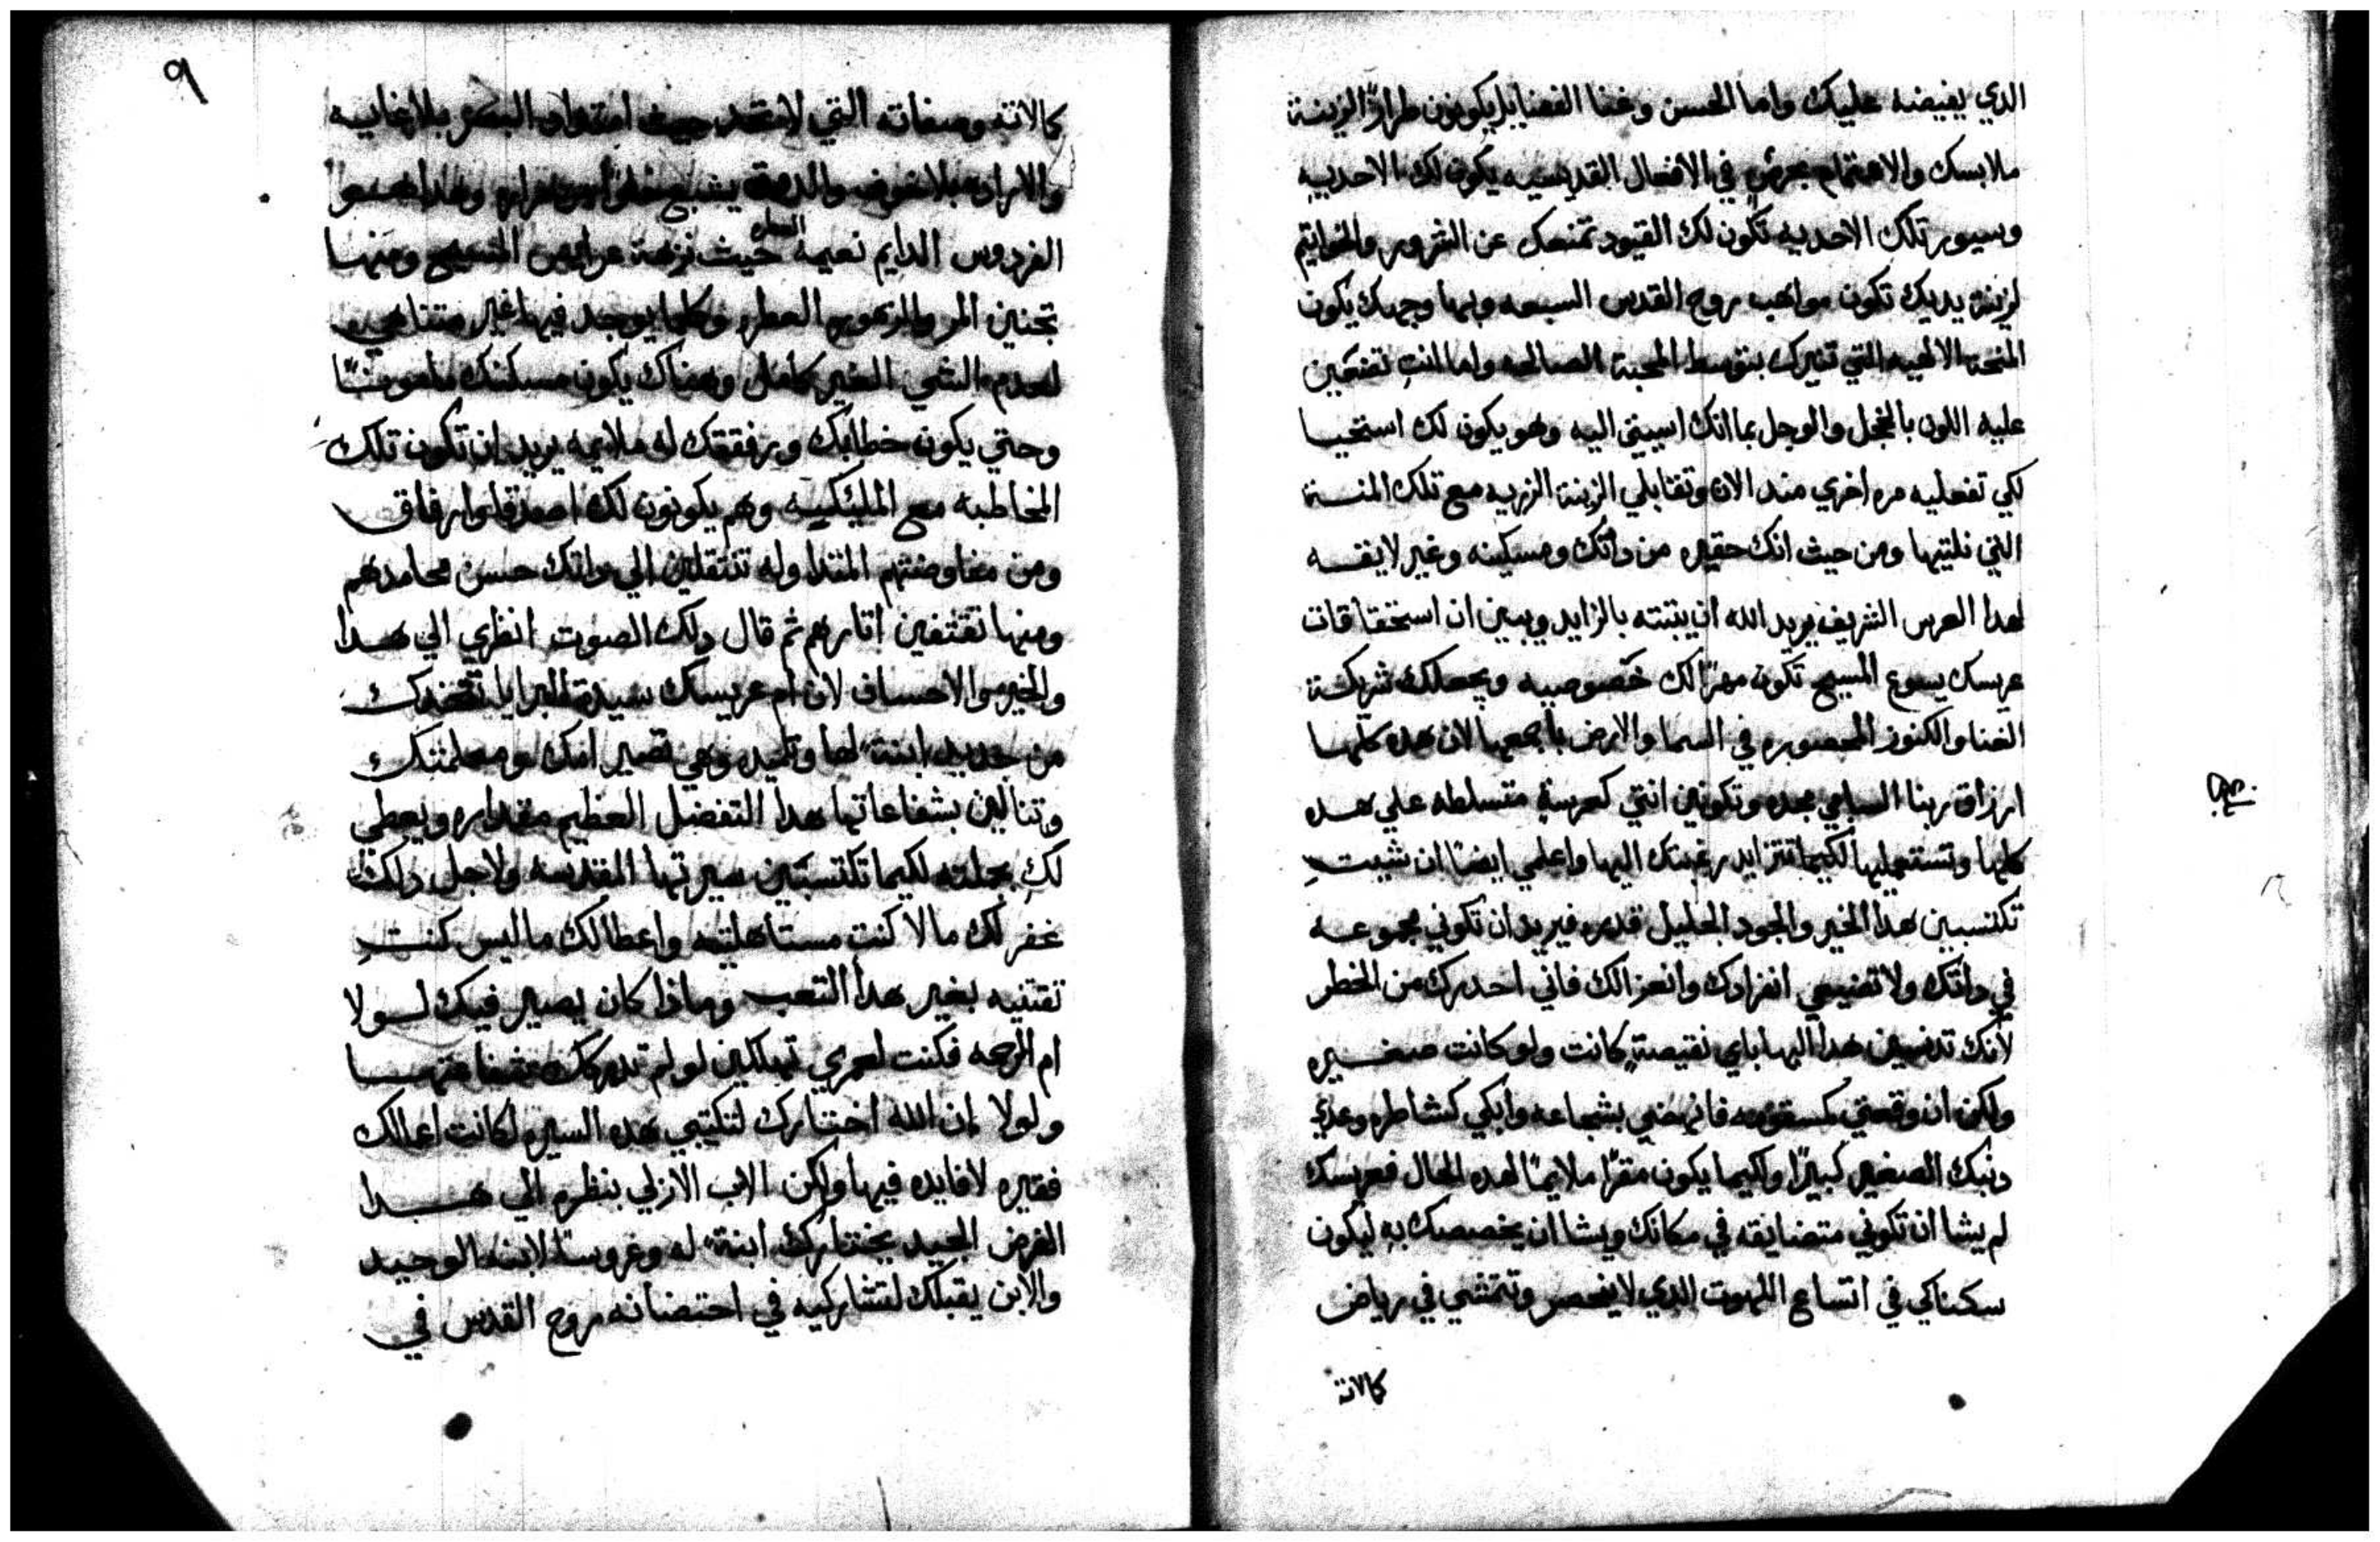 الدي يفيضه عليك واما الحسن وغنا الفضايل يكونون طرازًا لزينة
ملابسك والاهتمام بحرصٍ في الافعال القديسيه يكون لك الاحديه
وسيور تلك الاحديه تكون لك القيود تمنعك عن الشرور والخواتيم
لزينة يديك تكون مواهب روح القدس السبعه وبها وجهك يكون
المنحة الالهيه التي تنيرك بتوسط المحبة الصالحه واما انتِ تضعين
عليه اللون بالخجل والوجل بما انك اسييتي اليه وهو يكون لك استحيا
لكي تفعليه مره اخري مند الان وتقابلي الزينة الزريه مع تلك المنسة
التي نلتيها ومن حيث انك حقيره من داتك ومسكينه وغير لايقه
لهدا العرس الشريف يريد الله ان يثبته بالزايد ويبين ان استحقاقات
عريسك يسوع المسيح تكون مهرًا لك خصوصيه ويجعلك شريكة
الغنا والكنوز المحصوره في السما والارض باجمعها لان هده كلها
ارزاق ربنا السامي مجده وتكونين انتي كعرسة متسلطه علي هده
كلها وتستعمليها لكيما تتزايد رغبتك اليها واعلمي ايضًا ان شيتِ
تكتسبين هدا الخير والجود الجليل قدره فيريد ان تكوني مجموعه
في داتك ولا تضيعي انفرادك وانعزالك فاني احدرك من الخطر
لانك تدنسين هدا البها باي نقيصةٍ كانت ولو كانت صغيره
ولكن ان وقعتي كسقوده فانهضي بشجاعه وابكي كشاطره وعدي
دنبك الصغير كبيرًا ولكيما يكون مقرًا ملايمًا لهده الحال فعريسك
لم يشا ان تكوني متضايقه في مكانك ويشا ان يخصصك به ليكون
سكناكي في اتساع اللاهوت الدي لا ينحصر وتتمشي في رياض
كمالاته
٩
كمالاته وصفاته التي لا تحد حيث امتداد البصر بلا نهايه
والاراده بلا خوف
الفردوس الدايم نعيمه حيث نزهة عرايس المسيح ومنها
تجنين المر والزهور العطره وكلما يوجد فيها غير متناهي
لعدم الشي الغير كامل وهناك يكون مسكنك مامونًا
وحتي يكون خطابك ورفقتك له ملايمه يريد ان تكون تلك
المخاطبه مع المليكيه وهم يكونون لك اصدقا وارفاق
ومن مفاوضتهم المتداوله تنتقلين الي داتك حسن محامدهم
ومنها تقتفين اتارهم ثم قال دلك الصوت انظري الي هدا
والخير والاحسان لان ام عريسك سيدة البرايا تتخدك
من جديد ابنة لها وتلميده وهي تصير امك ومعلمتك
وتنالين بشفاعاتها هدا التفضل العظيم مقداره ويعطي
لكِ بجملته لكيما تكتسبين سيرتها المقدسه ولاجل دلك
غفر لك ما لا كنتِ مستاهلته واعطا لك ما ليس كنتِ
تقتنيه بغير هدا التعب وماذا كان يصير فيك لولا
ام الرحمه فكنت لعمري تهلكين لو لم تدركك شفاعتها
ولولا ان الله اختارك لتكتبي هده السيره لكانت اعمالك
فقيره لا فايده فيها ولكن الاب الازلي بنظره الي هدا
الغرض المجيد يختارك ابنة له وعروسًا لابنه الوحيد
والابن يقبلك لتشاركيه في احتضانه روح القدس في